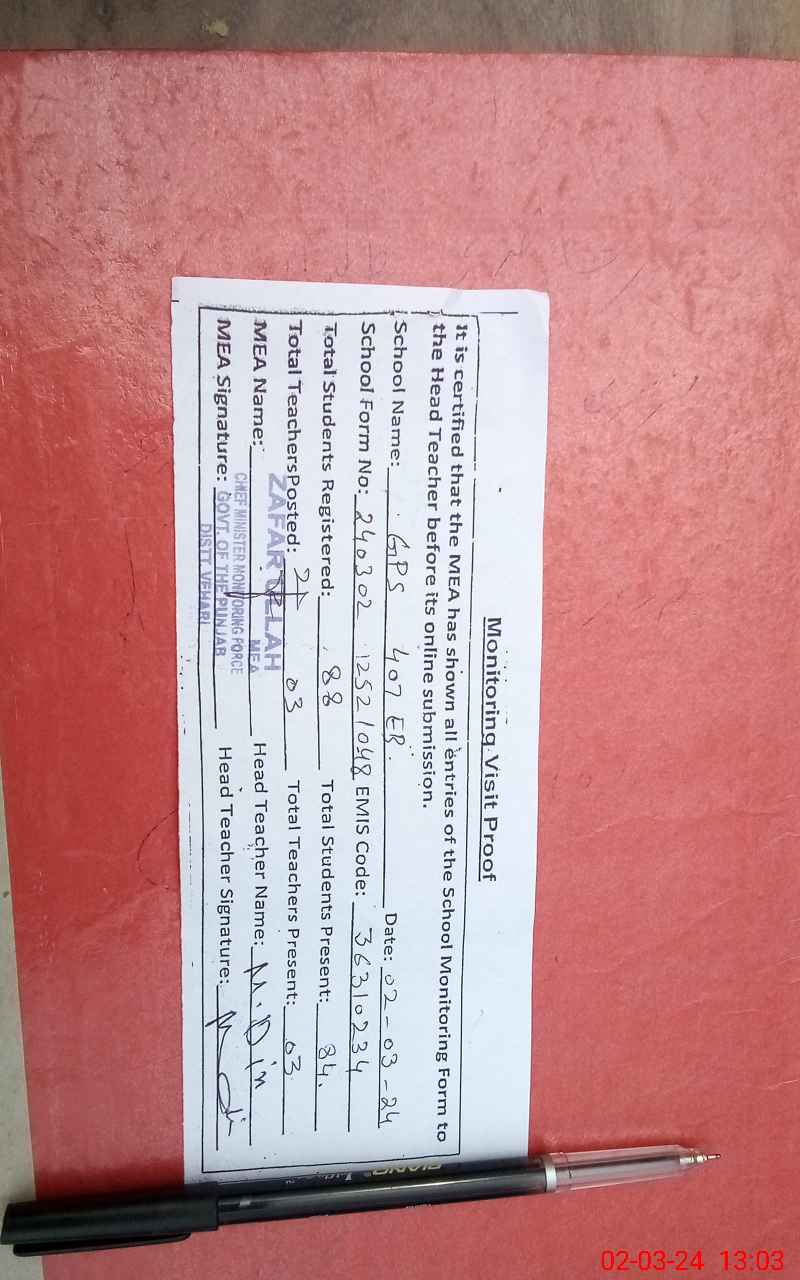 Monitoring Visit Proof
It is certified that the MEA has shown all entries of the School Monitoring Form to
the Head Teacher before its online submission.
School Name: GPS 407 EB. Date: 02-03-24
School Form No: 240302 12521048 EMIS Code: 36310234
Total Students Registered: 88 Total Students Present: 84.
Total TeachersPosted: 03 Total Teachers Present: 03
MEA Name: ZAFAR ULLAH Head Teacher Name: M. Din
MEA
CHIEF MINISTER MONITORING FORCE
MEA Signature: GOVT. OF THE PUNJAB Head Teacher Signature:
DISTT. VEHARI
PIANO
02-03-24 13:03